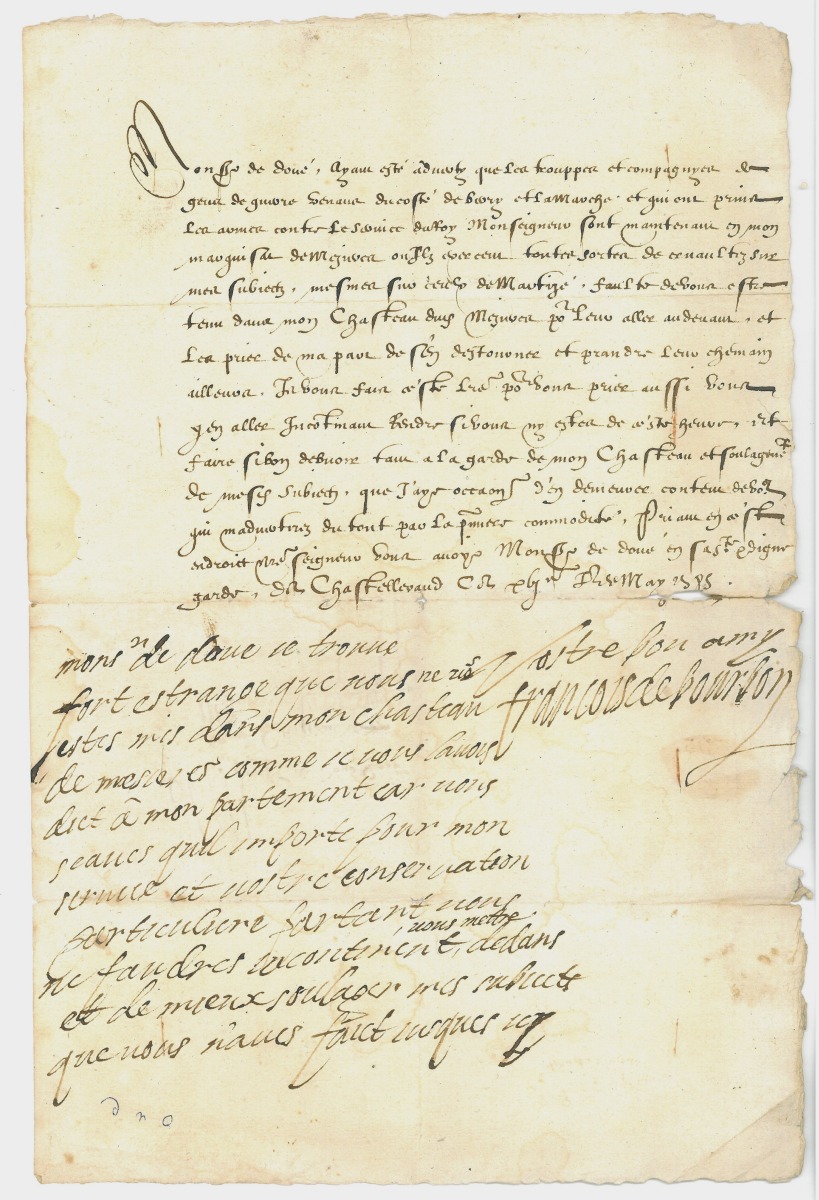 Monsr de doué, Ayant esté aduerty que les trouppes et compagnyes de
gens de guerre venans du costé de berry et la Marche et qui ont prins
les armes contre le seruice du Roy Monseigneur sont maintenant en mon
marquisat de Mezieres ou Ilz exercent toutes sortes de cruaultez sur
mes subiectz, mesmes sur ceulx de Martizé, faulte de vous estre
tenu dans mon Chasteau dud Mezieres por leur aller au deuant, et
les prier de ma part de s'en destourner et prandre leur chemain
ailleurs. Je vous fais ceste lre por vous prier aussi vous
y en aller Incontinant Rendre si vous ny estes de ceste heure, et
faire si bon debuoir tant a la garde de mon Chasteau et soulagemt
de mesd subiectz, que J'aye occaon d'en demeurer content de vous
qui maduertirez du tout par la pmiere commodité, Priant en cest
endroict nre seigneur vous auoyr Monsr de doué en sa ste et digne
garde, De Chastelleraud Ce xbije de May 1585.
Vostre bon amy
francois de bourbon
monsr de doue ie trouue
fort estrange que vous ne vous
estes mis dans mon chasteau
de mesieres comme ie vous lauois
dict a mon partement car vous
scaues quil importe pour mon
seruice et vostre conseruation
particuliere partant vous
ne faudres incontinent vous mettre dedans
et de mieux soulager mes subiects
que vous n'aues faict iusques icy